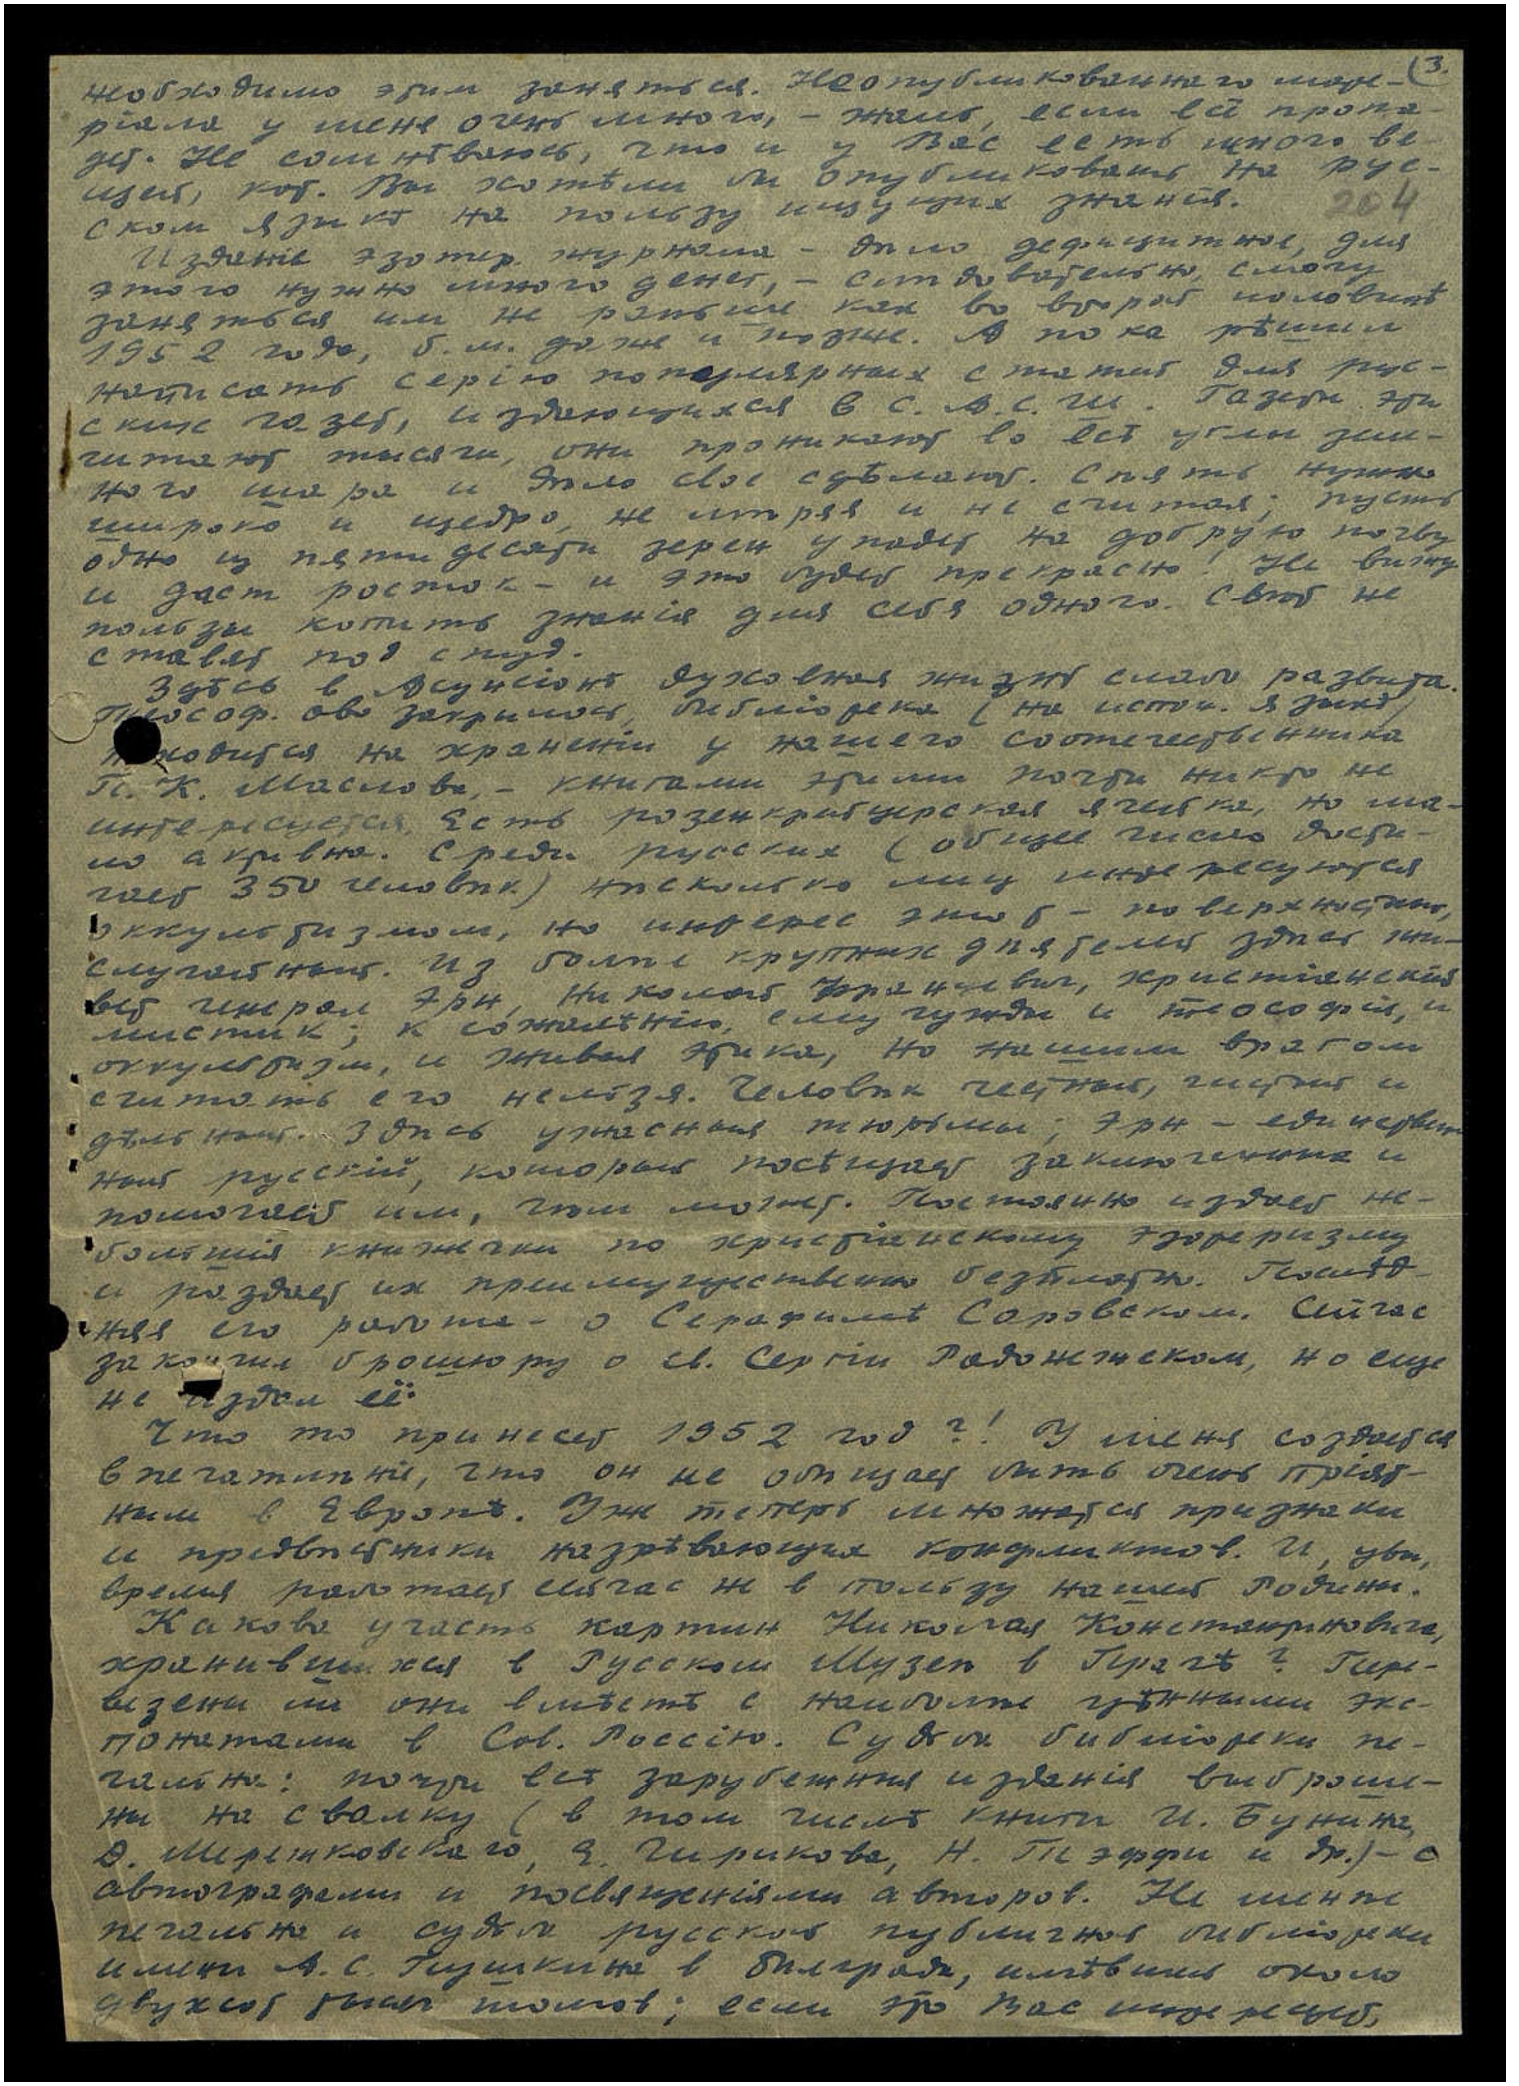 (3.
необходимо этим заняться. Неопубликованнаго мате-
ріала у меня очень много, – жаль, если всё пропа-
дет. Не сомнѣваюсь, что и у Вас есть много ве-
щей, кот. Вы хотѣли бы опубликовать на рус-
ском языкѣ на пользу ищущих знанія.
204
Изданіе эзотер. журнала – дѣло дефицитное, для
этого нужно много денег, – слѣдовательно, смогу
заняться им не раньше как во второй половинѣ
1952 года, б.м. даже и позже. А пока рѣшил
написать серію популярных статей для рус-
ских газет, издающихся в С.А.С.Ш. Газеты эти
читают тысячи, они проникают во всѣ углы зем-
ного шара и дѣло свое сдѣлают. Сѣять нужно
широко и щедро, не мѣряя и не считая; пусть
одно из пятидесяти зерен упадет на добрую почву
и даст росток – и это будет прекрасно! Не вижу
пользы копить знанія для себя одного. Свѣт не
ставят под спуд.
Здѣсь в Асунсіонѣ духовная жизнь слабо развита.
Теософ. о-во закрылось, библіотека (на испан. языкѣ)
находится на храненіи у нашего соотечественника
П. К. Маслова, – книгами этими почти никто не
интересуется. Есть розенкрейцерская ячейка, но ма-
ло активна. Среди русских (общее число дости-
гает 350 человѣк) нѣсколько лиц интересуются
оккультизмом, но интерес этот – поверхностный,
случайный. Из болѣе крупных дѣятелей здѣсь жи-
вет генерал Эрн, Николай Францевич, христіанскій
мистик; к сожалѣнію, ему чужды и теософія, и
оккультизм, и живая этика, но нашим врагом
считать его нельзя. Человѣк честный, чистый и
дѣльный. Здѣсь ужасныя тюрьмы; Эрн – единствен-
ный русскій, который посѣщает заключенных и
помогает им, чѣм может. Постоянно издает не-
большія книжечки по христіанскому эзотеризму
и раздает их преимущественно безплатно. Послѣд-
няя его работа – о Серафимѣ Саровском. Сейчас
закончил брошюру о св. Сергіи Радонежском, но еще
не издал её.
Что то принесет 1952 год?! У меня создается
впечатлѣніе, что он не обѣщает быть очень пріят-
ным в Европѣ. Уже теперь множатся признаки
и предвѣстники назрѣвающих конфликтов. И, увы,
время работает сейчас не в пользу нашей Родины.
Какова участь картин Николая Константиновича,
хранившихся в Русском Музеѣ в Прагѣ? Пере-
везены ли они вмѣстѣ с наиболѣе цѣнными экс-
понатами в Сов. Россію. Судьба библіотеки пе-
чальна: почти всѣ зарубежныя изданія выброше-
ны на свалку (в том числѣ книги И. Бунина,
Д. Мережковскаго, Е. Чирикова, Н. Тэффи и др.) – с
автографами и посвященіями авторов. Не менѣе
печальна и судьба русской публичной библіотеки
имени А.С. Пушкина в Бѣлградѣ, имѣвшей около
двухсот тысяч томов; если это Вас интересует,